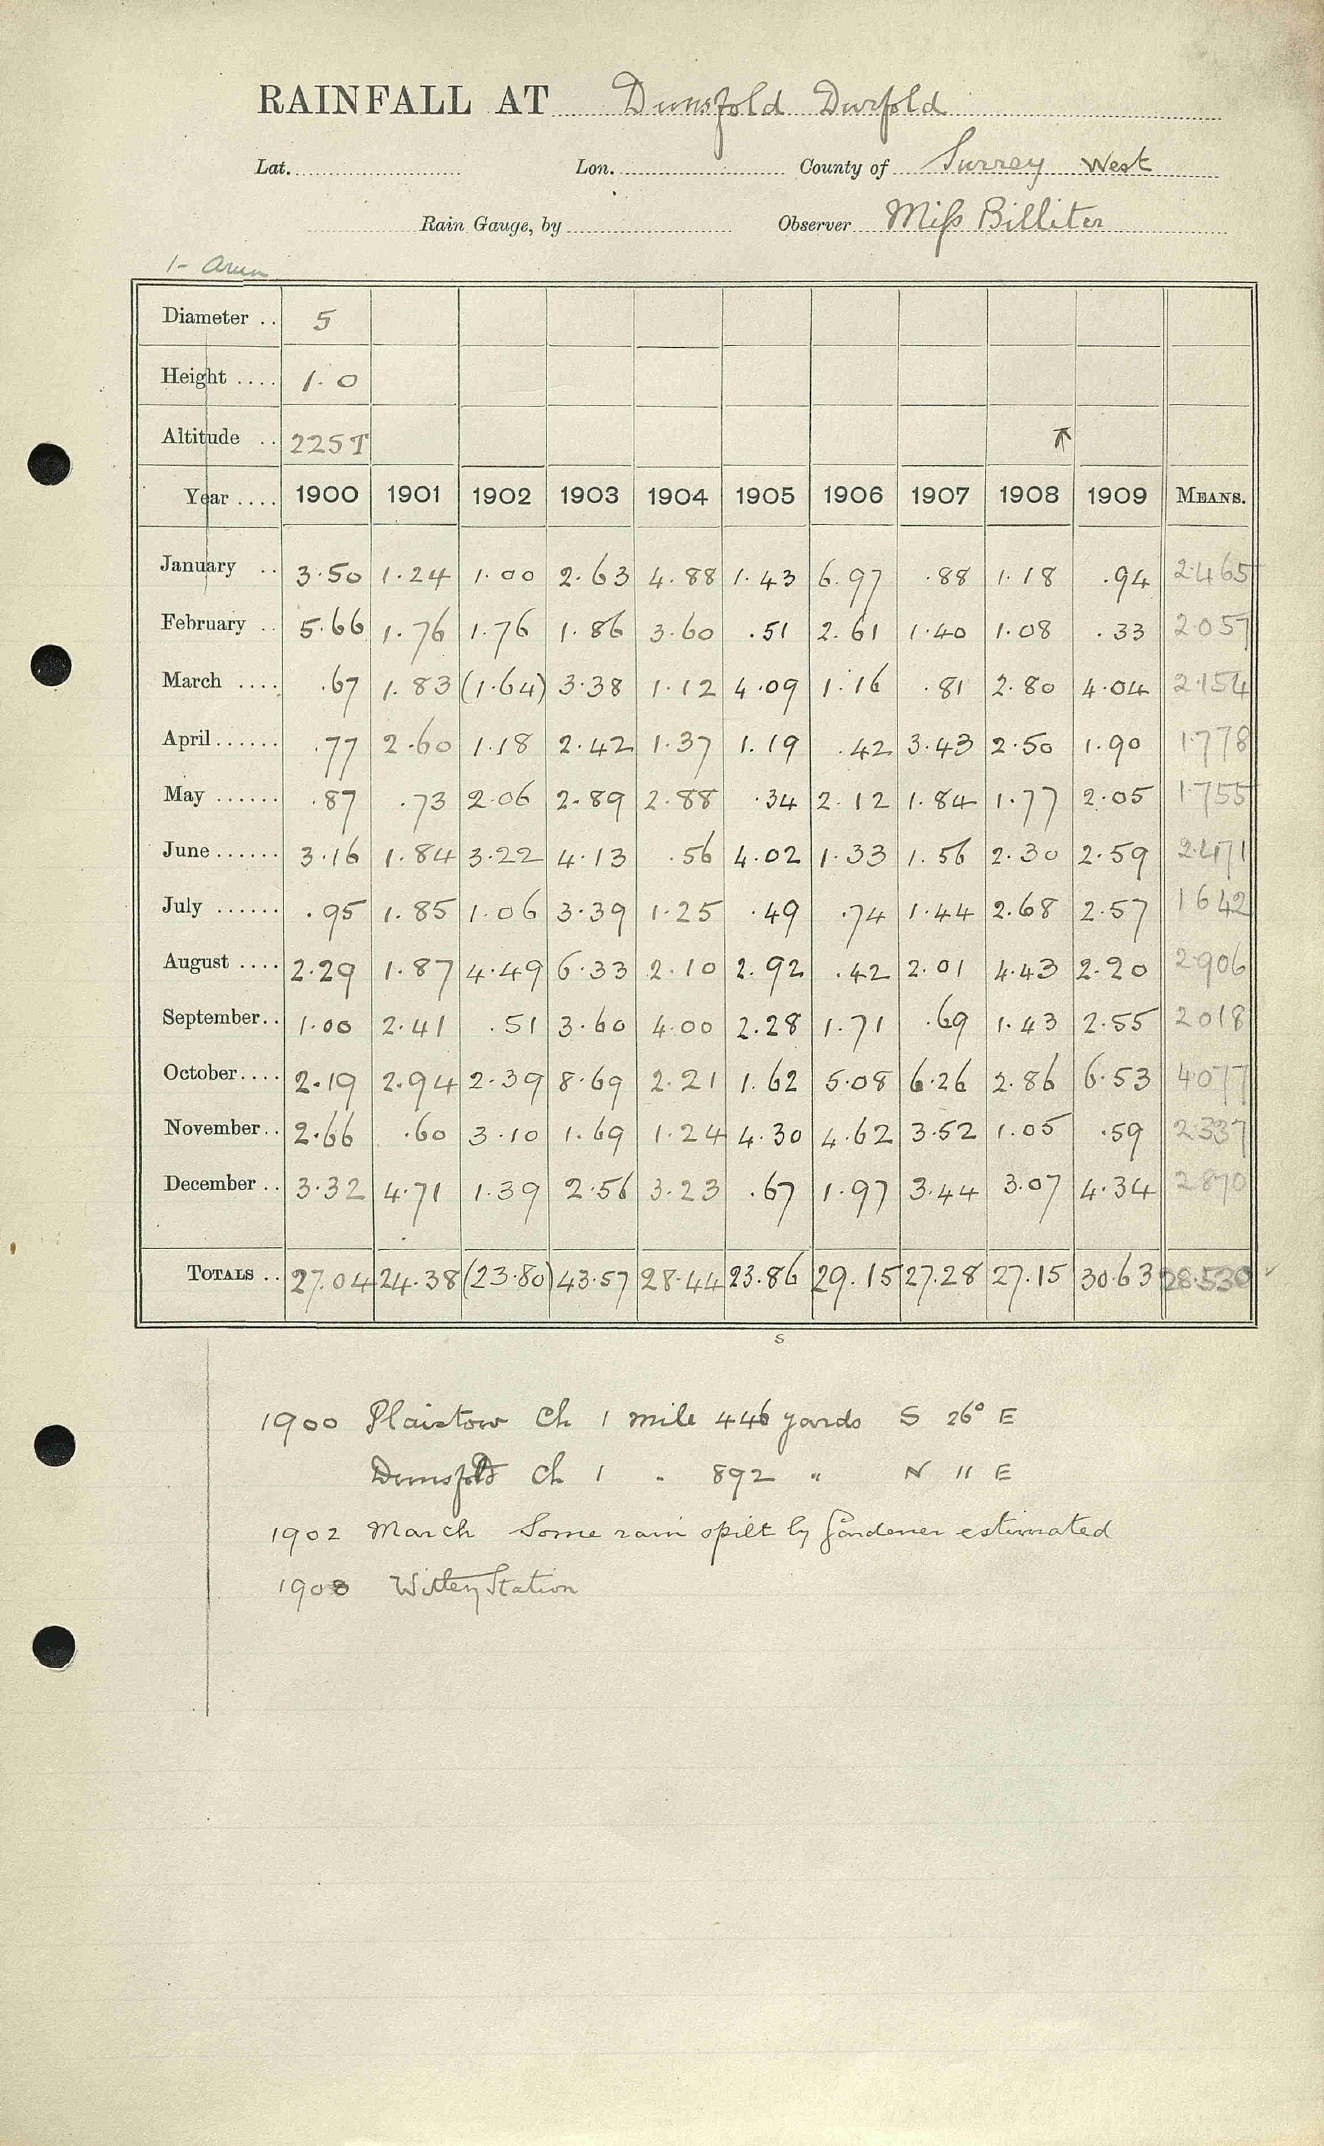 RAINFALL AT Dunsfold Durfold
Lat. Lon. County of Surrey West
Rain Gauge, by Observer Miss Billiter
1- Arun
Diameter .. 5
Height .... 1.0
Altitude .. 225T ↗
Year .... 1900 1901 1902 1903 1904 1905 1906 1907 1908 1909 MEANS.
January .. 3.50 1.24 1.00 2.63 4.88 1.43 6.97 .88 1.18 .94 2.465
February .. 5.66 1.76 1.76 1.86 3.60 .51 2.61 1.40 1.08 .33 2.057
March .... .67 1.83 (1.64) 3.38 1.12 4.09 1.16 .81 2.80 4.04 2.154
April...... .77 2.60 1.18 2.42 1.37 1.19 .42 3.43 2.50 1.90 1.778
May ...... .87 .73 2.06 2.89 2.88 .34 2.12 1.84 1.77 2.05 1.755
June...... 3.16 1.84 3.22 4.13 .56 4.02 1.33 1.56 2.30 2.59 2.471
July ...... .95 1.85 1.06 3.39 1.25 .49 .74 1.44 2.68 2.57 1642
August .... 2.29 1.87 4.49 6.33 2.10 2.92 .42 2.01 4.43 2.20 2.906
September.. 1.00 2.41 .51 3.60 4.00 2.28 1.71 .69 1.43 2.55 2018
October.... 2.19 2.94 2.39 8.69 2.21 1.62 5.08 6.26 2.86 6.53 4077
November.. 2.66 .60 3.10 1.69 1.24 4.30 4.62 3.52 1.05 .59 2.337
December .. 3.32 4.71 1.39 2.56 3.23 .67 1.97 3.44 3.07 4.34 2870
TOTALS .. 27.04 24.38 (23.80) 43.57 28.44 23.86 29.15 27.28 27.15 30.63 28.530 ✓
s
1900 Plaistow Ch 1 mile 446 yards S 26° E
Dunsfold Ch 1 " 892 " N 11 E
1902 March Some rain spilt by Gardener estimated
1908 Witley Station